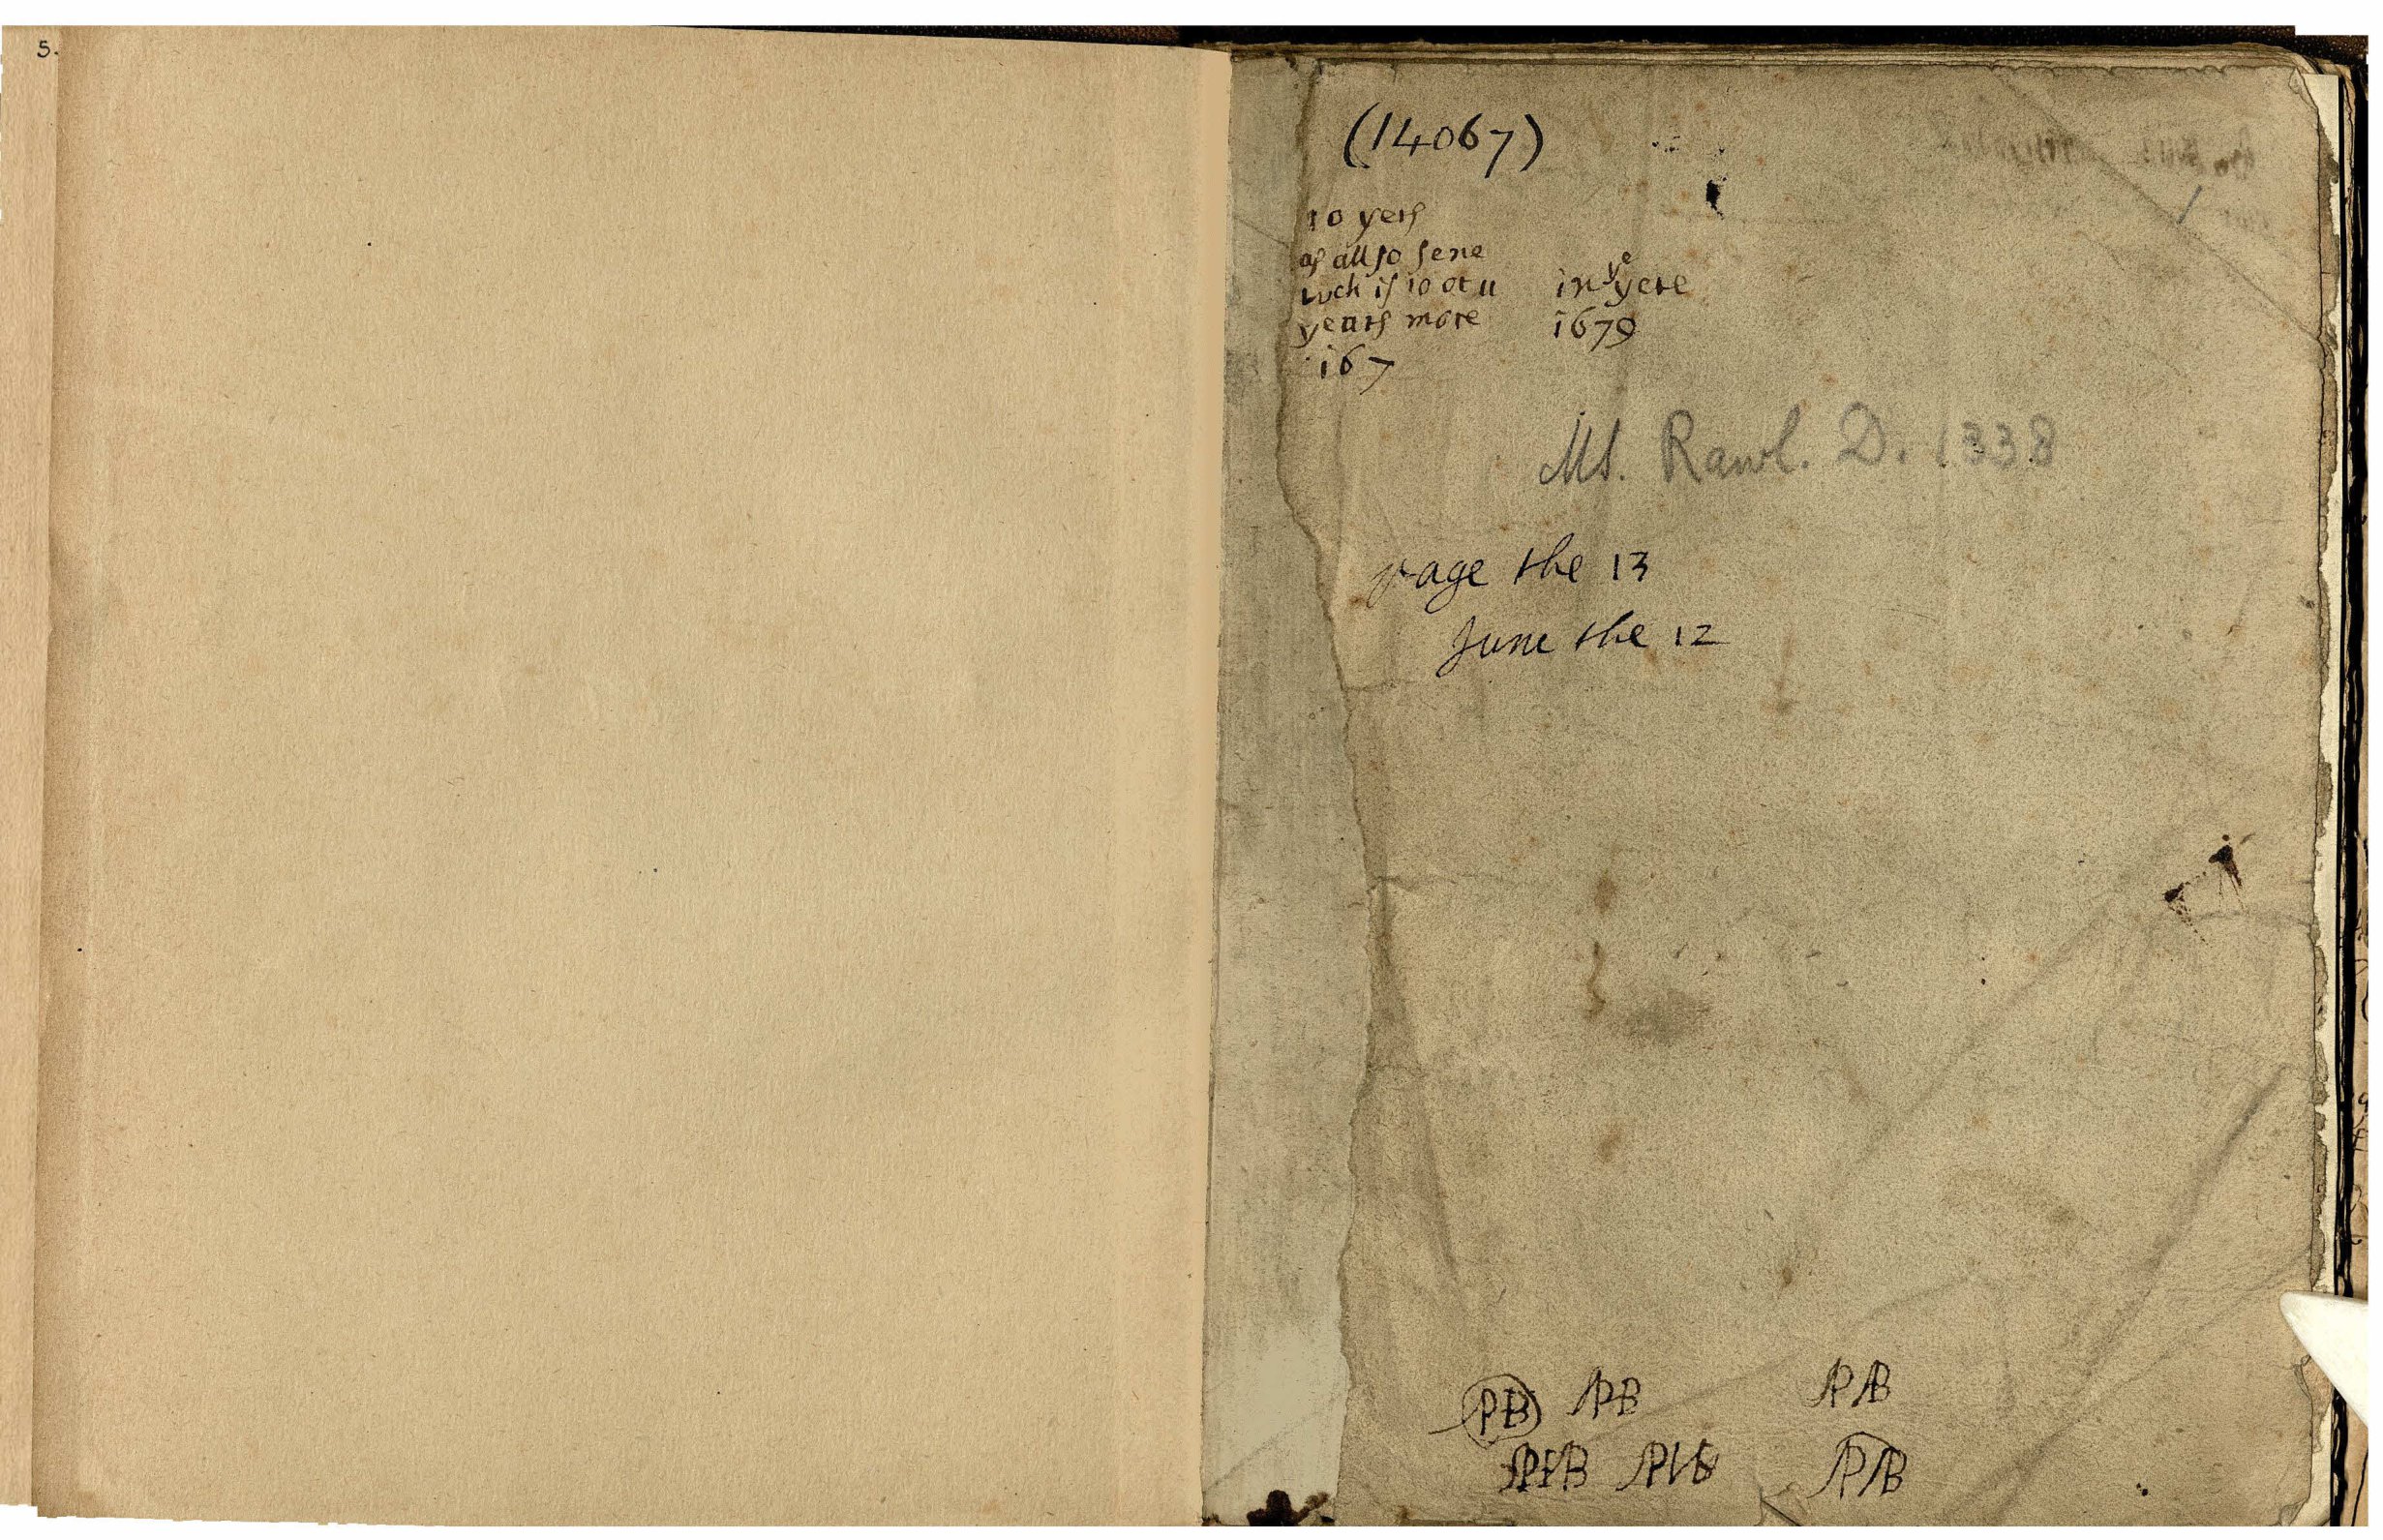 5.
(14067)
10 yers
as allso sene
wch is 10 or 11 in ye yere
years more 1679
167
MS. Rawl. D. 1338
page the 13
June the 12
PB PB PB
PB PB PB